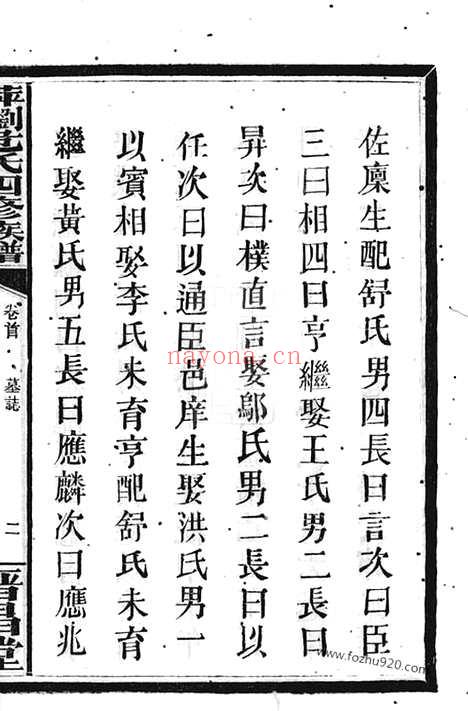 佐廩生配舒氏男四長曰言次曰臣
三曰相四曰亨繼娶王氏男二長曰
昇次曰樸直言娶鄔氏男二長曰以
任次曰以通臣邑庠生娶洪氏男一
以賓相娶李氏未育亨配舒氏未育
繼娶黃氏男五長曰應麟次曰應兆
氏四修族譜
卷首
墓誌
二
堂
nayona.cn
www.fozhu920.com